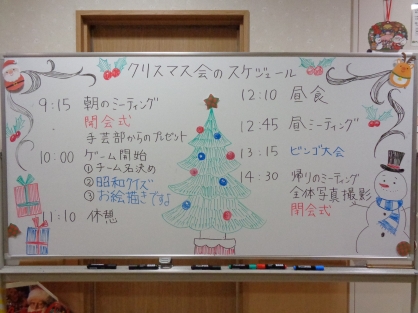 クリスマス会のスケジュール
9:15 朝のミーティング
開会式
手芸部からのプレゼント
10:00 ゲーム開始
①チーム名決め
②昭和クイズ
③お絵描きですよ
11:10 休憩
12:10 昼食
12:45 昼ミーティング
13:15 ビンゴ大会
14:30 帰りのミーティング
全体写真撮影
閉会式